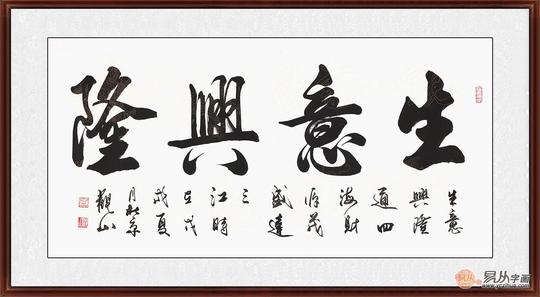 生意興隆
生意
興隆
通四
海財
源茂
盛達
三
江時
在戊
戌夏
月 京
觀山
易从字画
www.yczihua.com